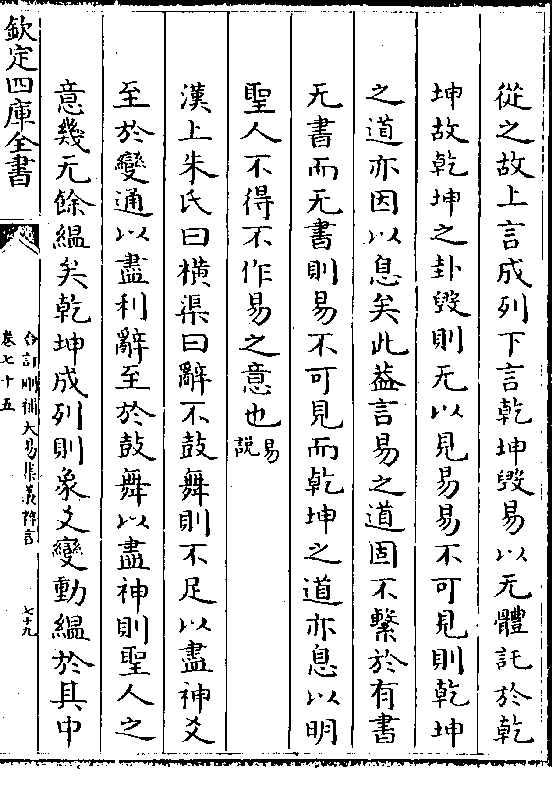 從之故上言成列下言乾坤毀易以无體託於乾
坤故乾坤之卦毀則无以見易易不可見則乾坤
之道亦因以息矣此葢言易之道固不繫於有書
无書而无書則易不可見而乾坤之道亦息以明
聖人不得不作易之意也易說
漢上朱氏曰橫渠曰辭不鼓舞則不足以盡神爻
至於變通以盡利辭至於鼓舞以盡神則聖人之
意幾无餘緼矣乾坤成列則象爻變動緼於其中
欽定四庫全書
合訂刪補大易集義粹言
卷七十五
七十九